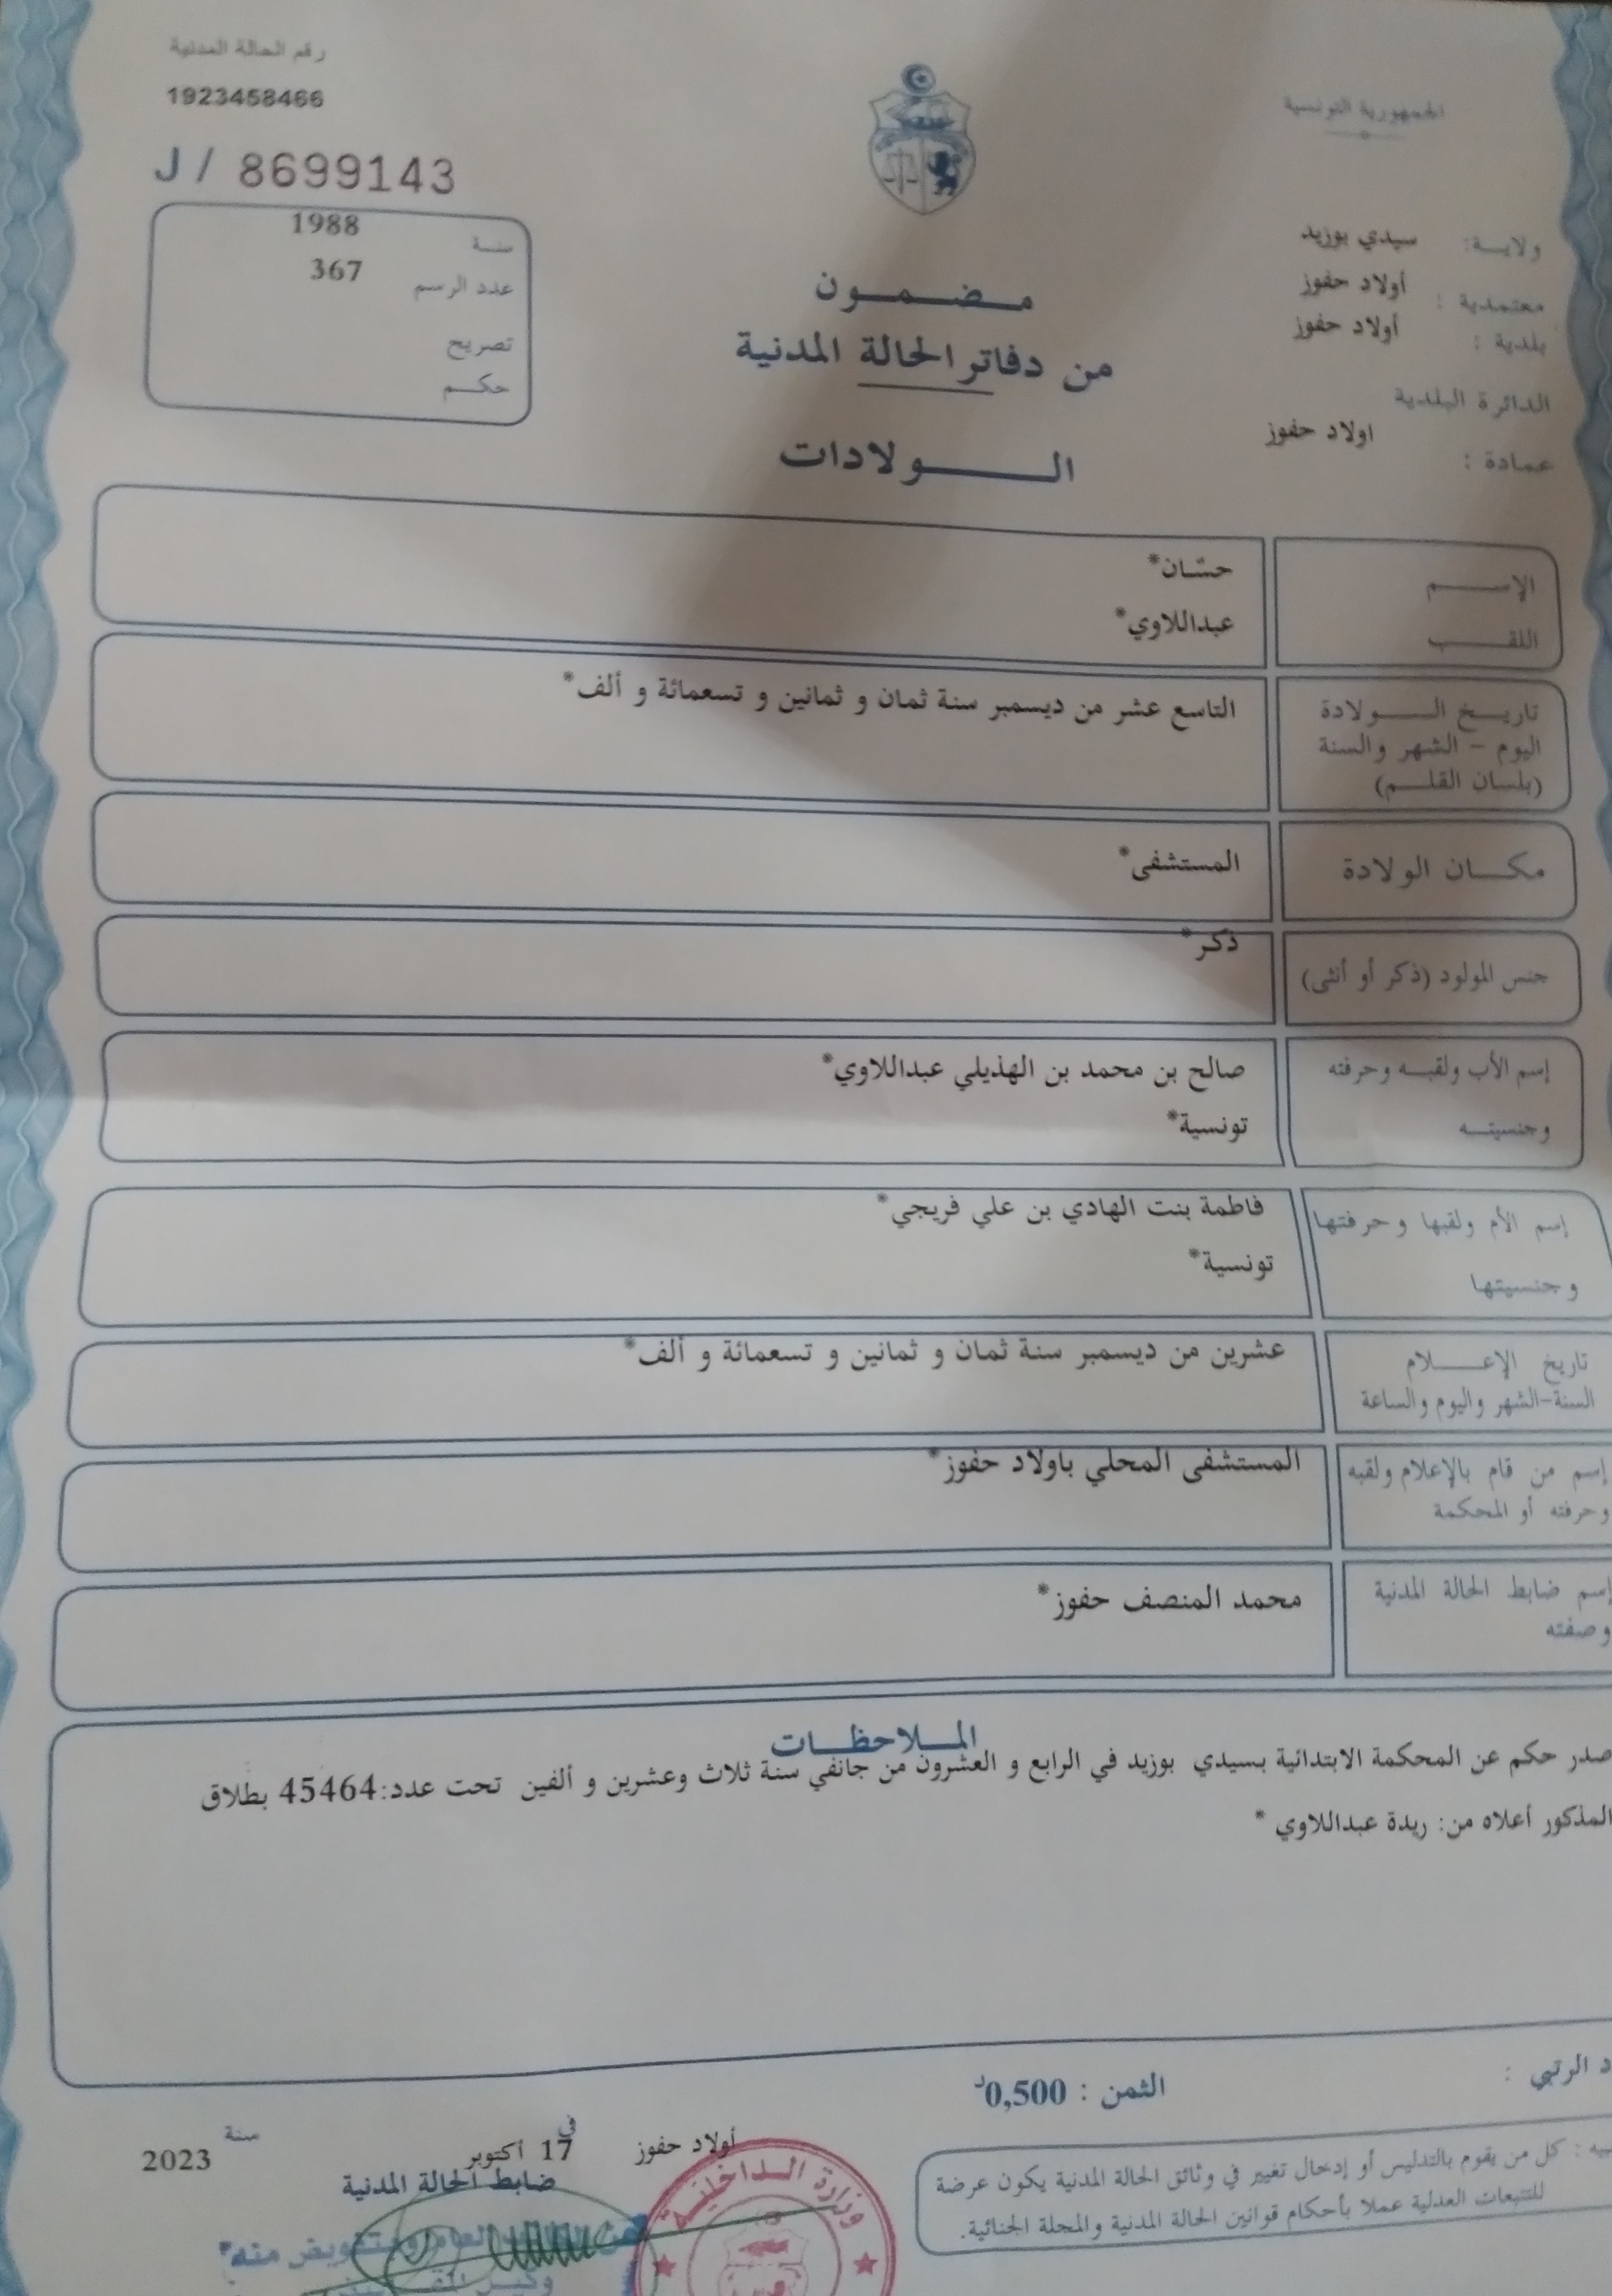 رقم الحالة المدنية
1923458466
J / 8699143
سنة 1988
عدد الرسم 367
تصريح
حكم
الجمهورية التونسية
ولاية: سيدي بوزيد
معتمدية : أولاد حفوز
بلدية : أولاد حفوز
الدائرة البلدية
عمادة : اولاد حفوز
مضمون
من دفاتر الحالة المدنية
الولادات
الإسم حسّان*
اللقب عبداللاوي*
تاريخ الولادة التاسع عشر من ديسمبر سنة ثمان و ثمانين و تسعمائة و ألف*
اليوم - الشهر والسنة
(بلسان القلم)
مكان الولادة المستشفى*
جنس المولود (ذكر أو أنثى) ذكر*
إسم الأب ولقبه وحرفته صالح بن محمد بن الهذيلي عبداللاوي*
وجنسيته تونسية*
إسم الأم ولقبها وحرفتها فاطمة بنت الهادي بن علي فريجي*
وجنسيتها تونسية*
تاريخ الإعلام عشرين من ديسمبر سنة ثمان و ثمانين و تسعمائة و ألف*
السنة-الشهر واليوم والساعة
إسم من قام بالإعلام ولقبه المستشفى المحلي باولاد حفوز*
وحرفته أو المحكمة
إسم ضابط الحالة المدنية محمد المنصف حفوز*
وصفته
الملاحظات
صدر حكم عن المحكمة الابتدائية بسيدي بوزيد في الرابع و العشرون من جانفي سنة ثلاث وعشرين و ألفين تحت عدد:45464 بطلاق
المذكور أعلاه من: ريدة عبداللاوي *
د الرتبي :
الثمن : 0,500د
أولاد حفوز في 17 أكتوبر سنة 2023
ضابط الحالة المدنية
كل من يقوم بالتدليس أو إدخال تغيير في وثائق الحالة المدنية يكون عرضة
للتتبعات العدلية عملا بأحكام قوانين الحالة المدنية والمجلة الجنائية.
وزارة الداخلية
العام وبتفويض منه